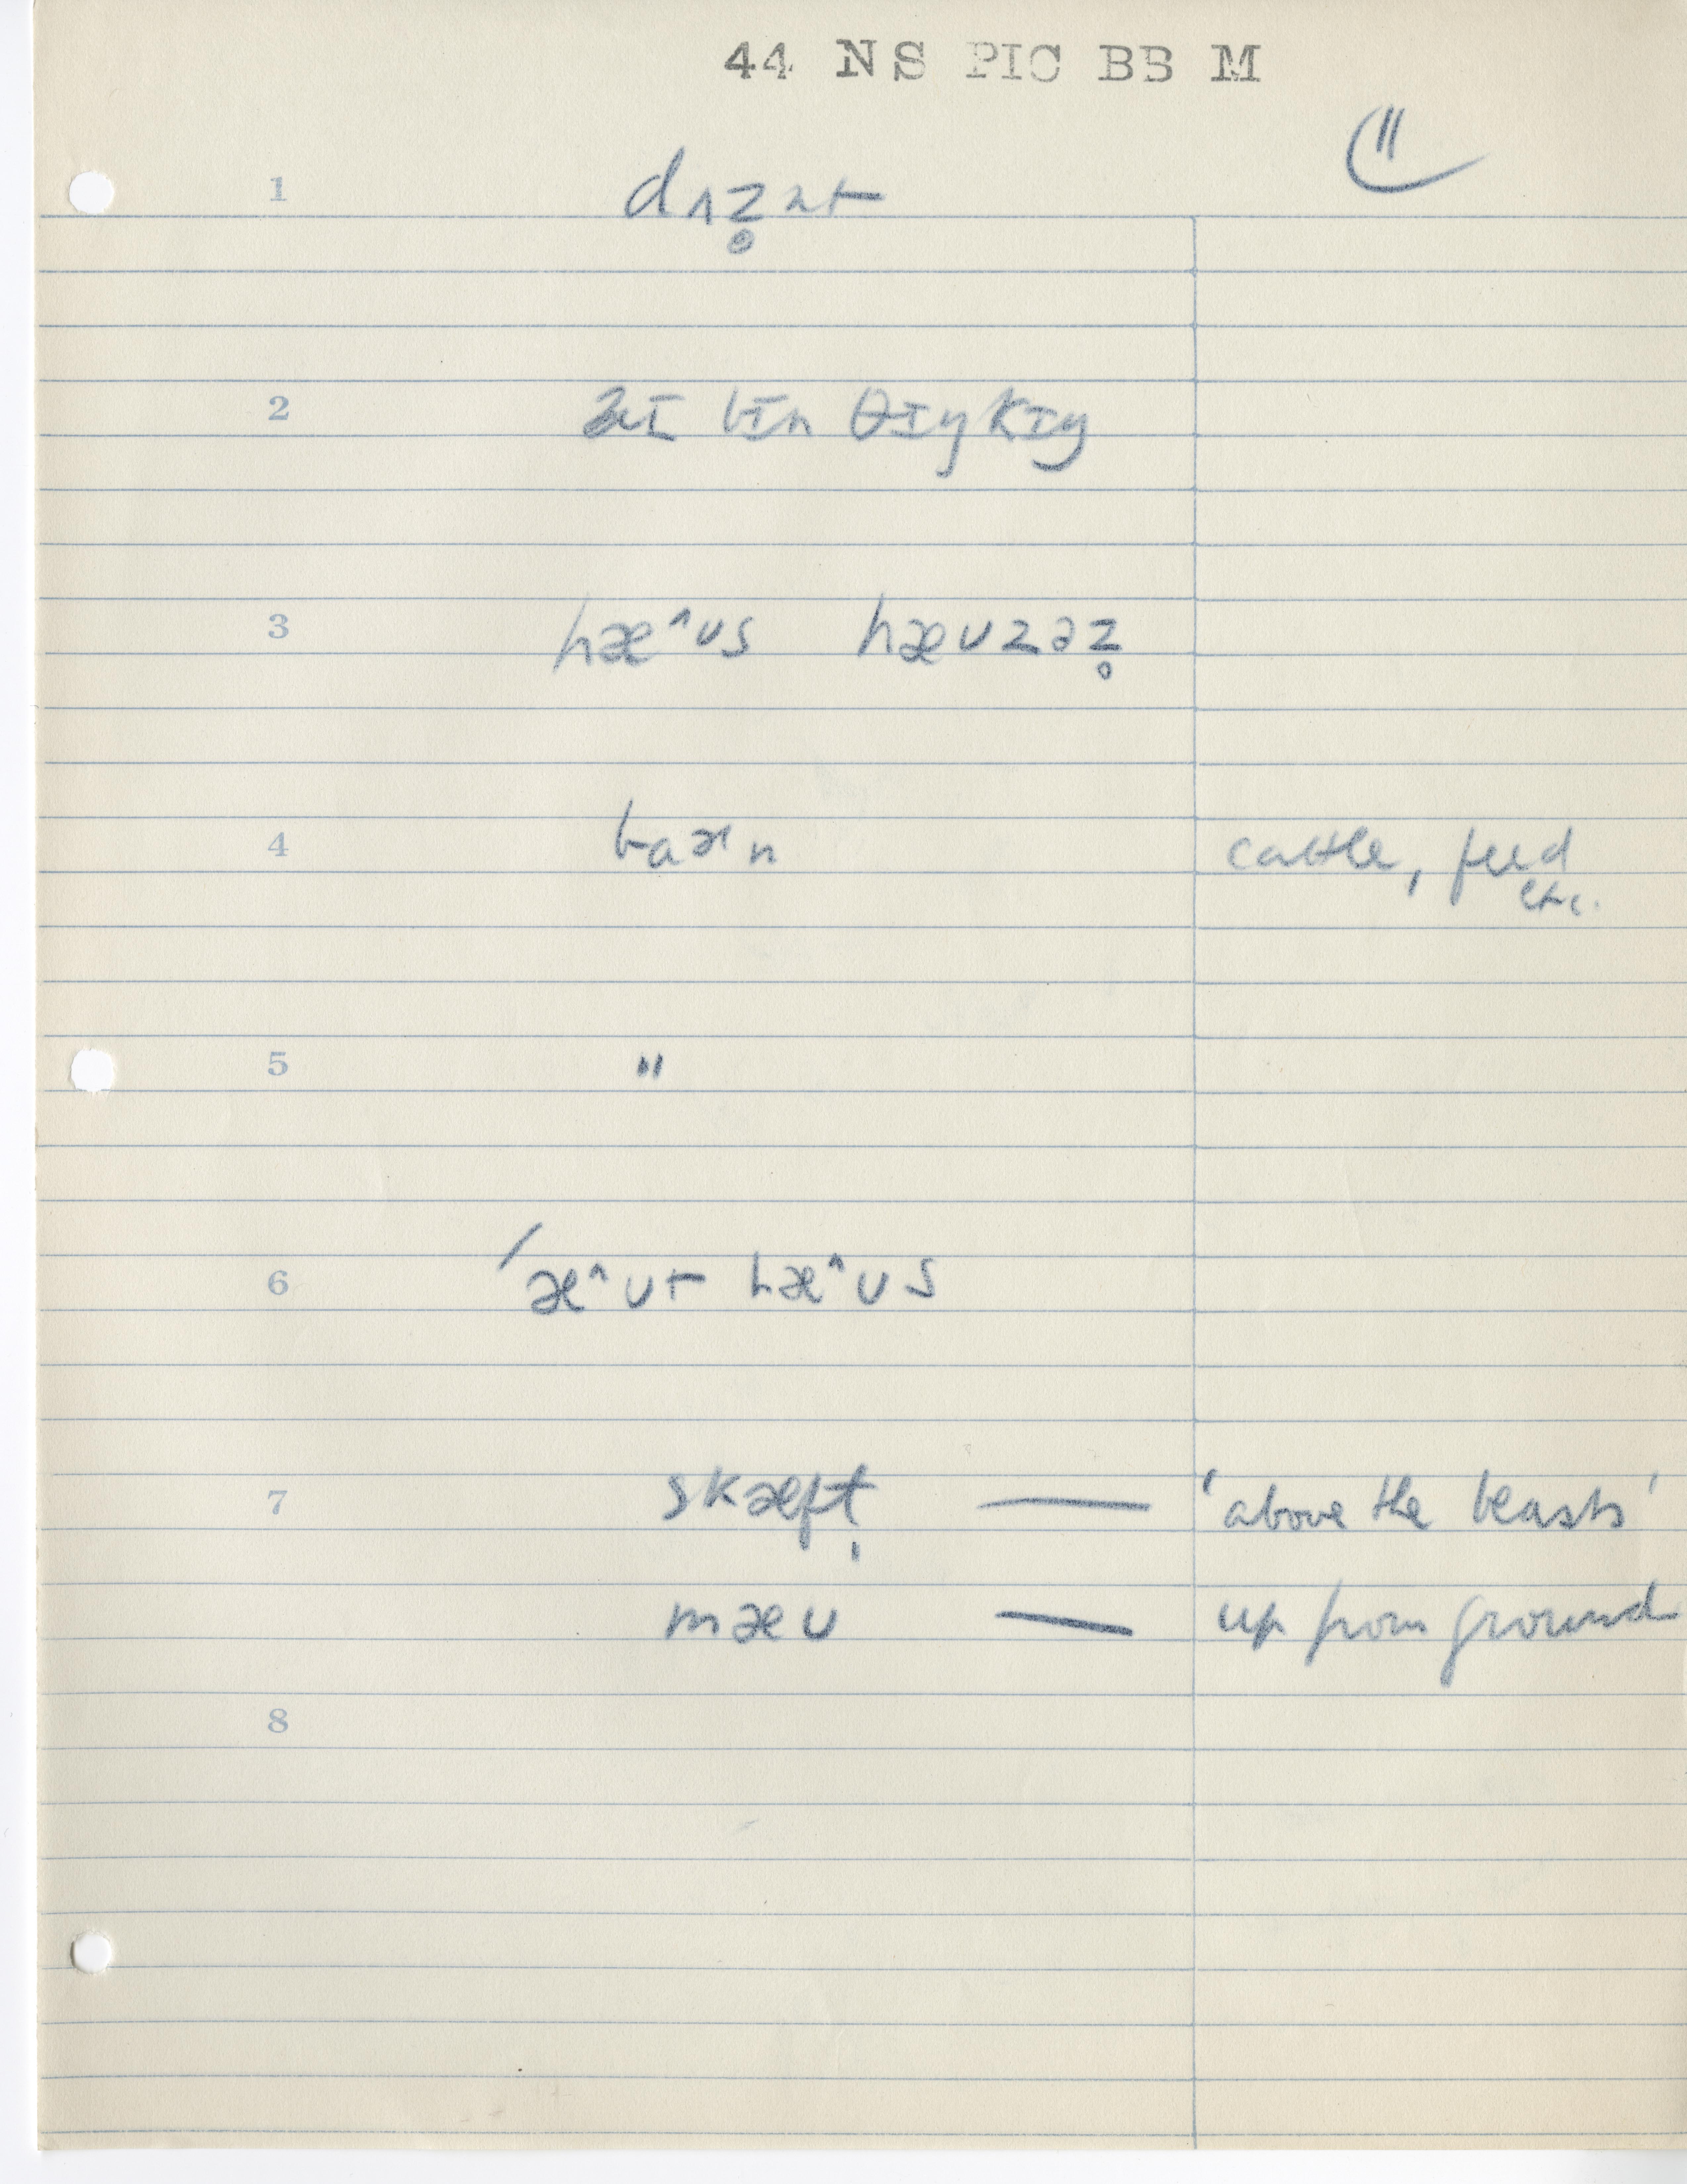 44 NS PIC BB M
11
1 dʌz̥nt
2 aɪ bɪn θɪŋkɪŋ
3 hæ^ʊs hæʊzəz̥
4 baən cattle, feed
etc.
5 "
6 ′æ^ʊt hæ^ʊs
7 skæft̩ — 'above the beasts'
mæʊ — up from ground
8